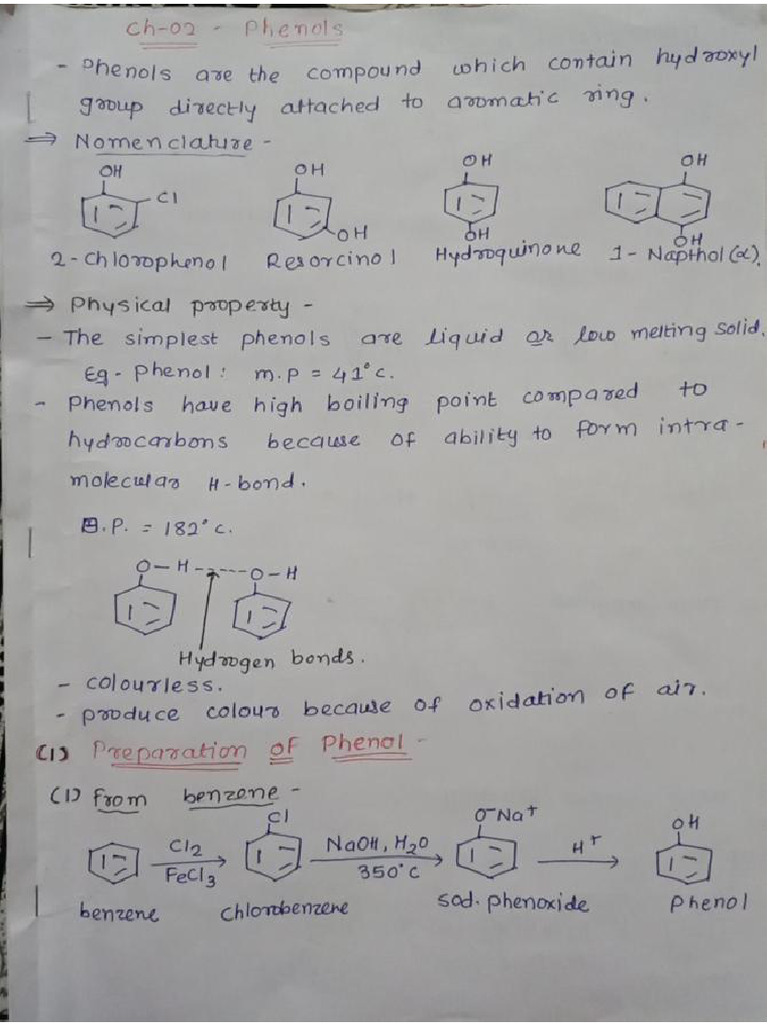 Ch-02 - Phenols
- Phenols are the compound which contain hydroxyl
group directly attached to aromatic ring.
⇒ Nomenclature -
OH OH OH OH
Cl
OH OH OH
2-Chlorophenol Resorcinol Hydroquinone 1-Napthol(α).
⇒ Physical property -
- The simplest phenols are liquid or low melting solid.
Eg - Phenol : m.p = 41°c.
- Phenols have high boiling point compared to
hydrocarbons because of ability to form intra-
molecular H-bond.
B.P. = 182°c.
O-H-----O-H
Hydrogen bonds.
- colourless.
- produce colour because of oxidation of air.
(1) Preparation of Phenol -
(1) From benzene -
Cl O⁻Na⁺ OH
Cl2 NaOH, H2O H⁺
FeCl3 350°C
benzene chlorobenzene sod. phenoxide phenol